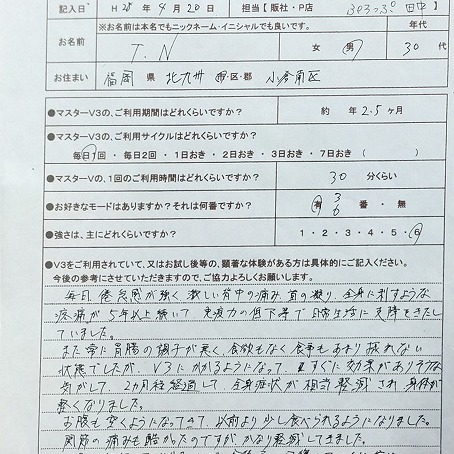 記入日 H28年4月20日 担当【販社・P店 田中】
※お名前は本名でもニックネーム・イニシャルでも良いです。 年代
お名前 T.N 女・男 30代
お住まい 福岡 県 北九州 市・区・郡 小倉南区
●マスターV3の、ご利用期間はどれくらいですか? 約 年 2.5ヶ月
●マスターV3の、ご利用サイクルはどれくらいですか?
毎日1回・毎日2回・1日おき・2日おき・3日おき・7日おき( )
●マスターVの、1回のご利用時間はどれくらいですか? 30分くらい
●お好きなモードはありますか?それは何番ですか? 有 3 6 番・無
●強さは、主にどれくらいですか? 1・2・3・4・5・6
●V3をご利用されていて、又はお試し後等の、顕著な体験がある方は具体的にご記入ください。
今後の参考にさせていただきますので、ご協力よろしくお願いします。
毎日倦怠感が強く激しい背中の痛み首の凝り、全身に刺すような
疼痛が5年以上続いて免疫力の低下等で日常生活に支障をきたし
ていました。
また常に胃腸の調子が悪く、食欲もなく食事もあまり採れない
状態でしたが、V3にかかるようになって、すぐに効果がありそうな
気がして、2カ月程経過して全身症状が相当軽減され身体が
軽くなりました。
お腹も空くようになってきて以前より少し食べられるようになりました。
関節の痛みも酷かったのですがかなり軽減してきました。